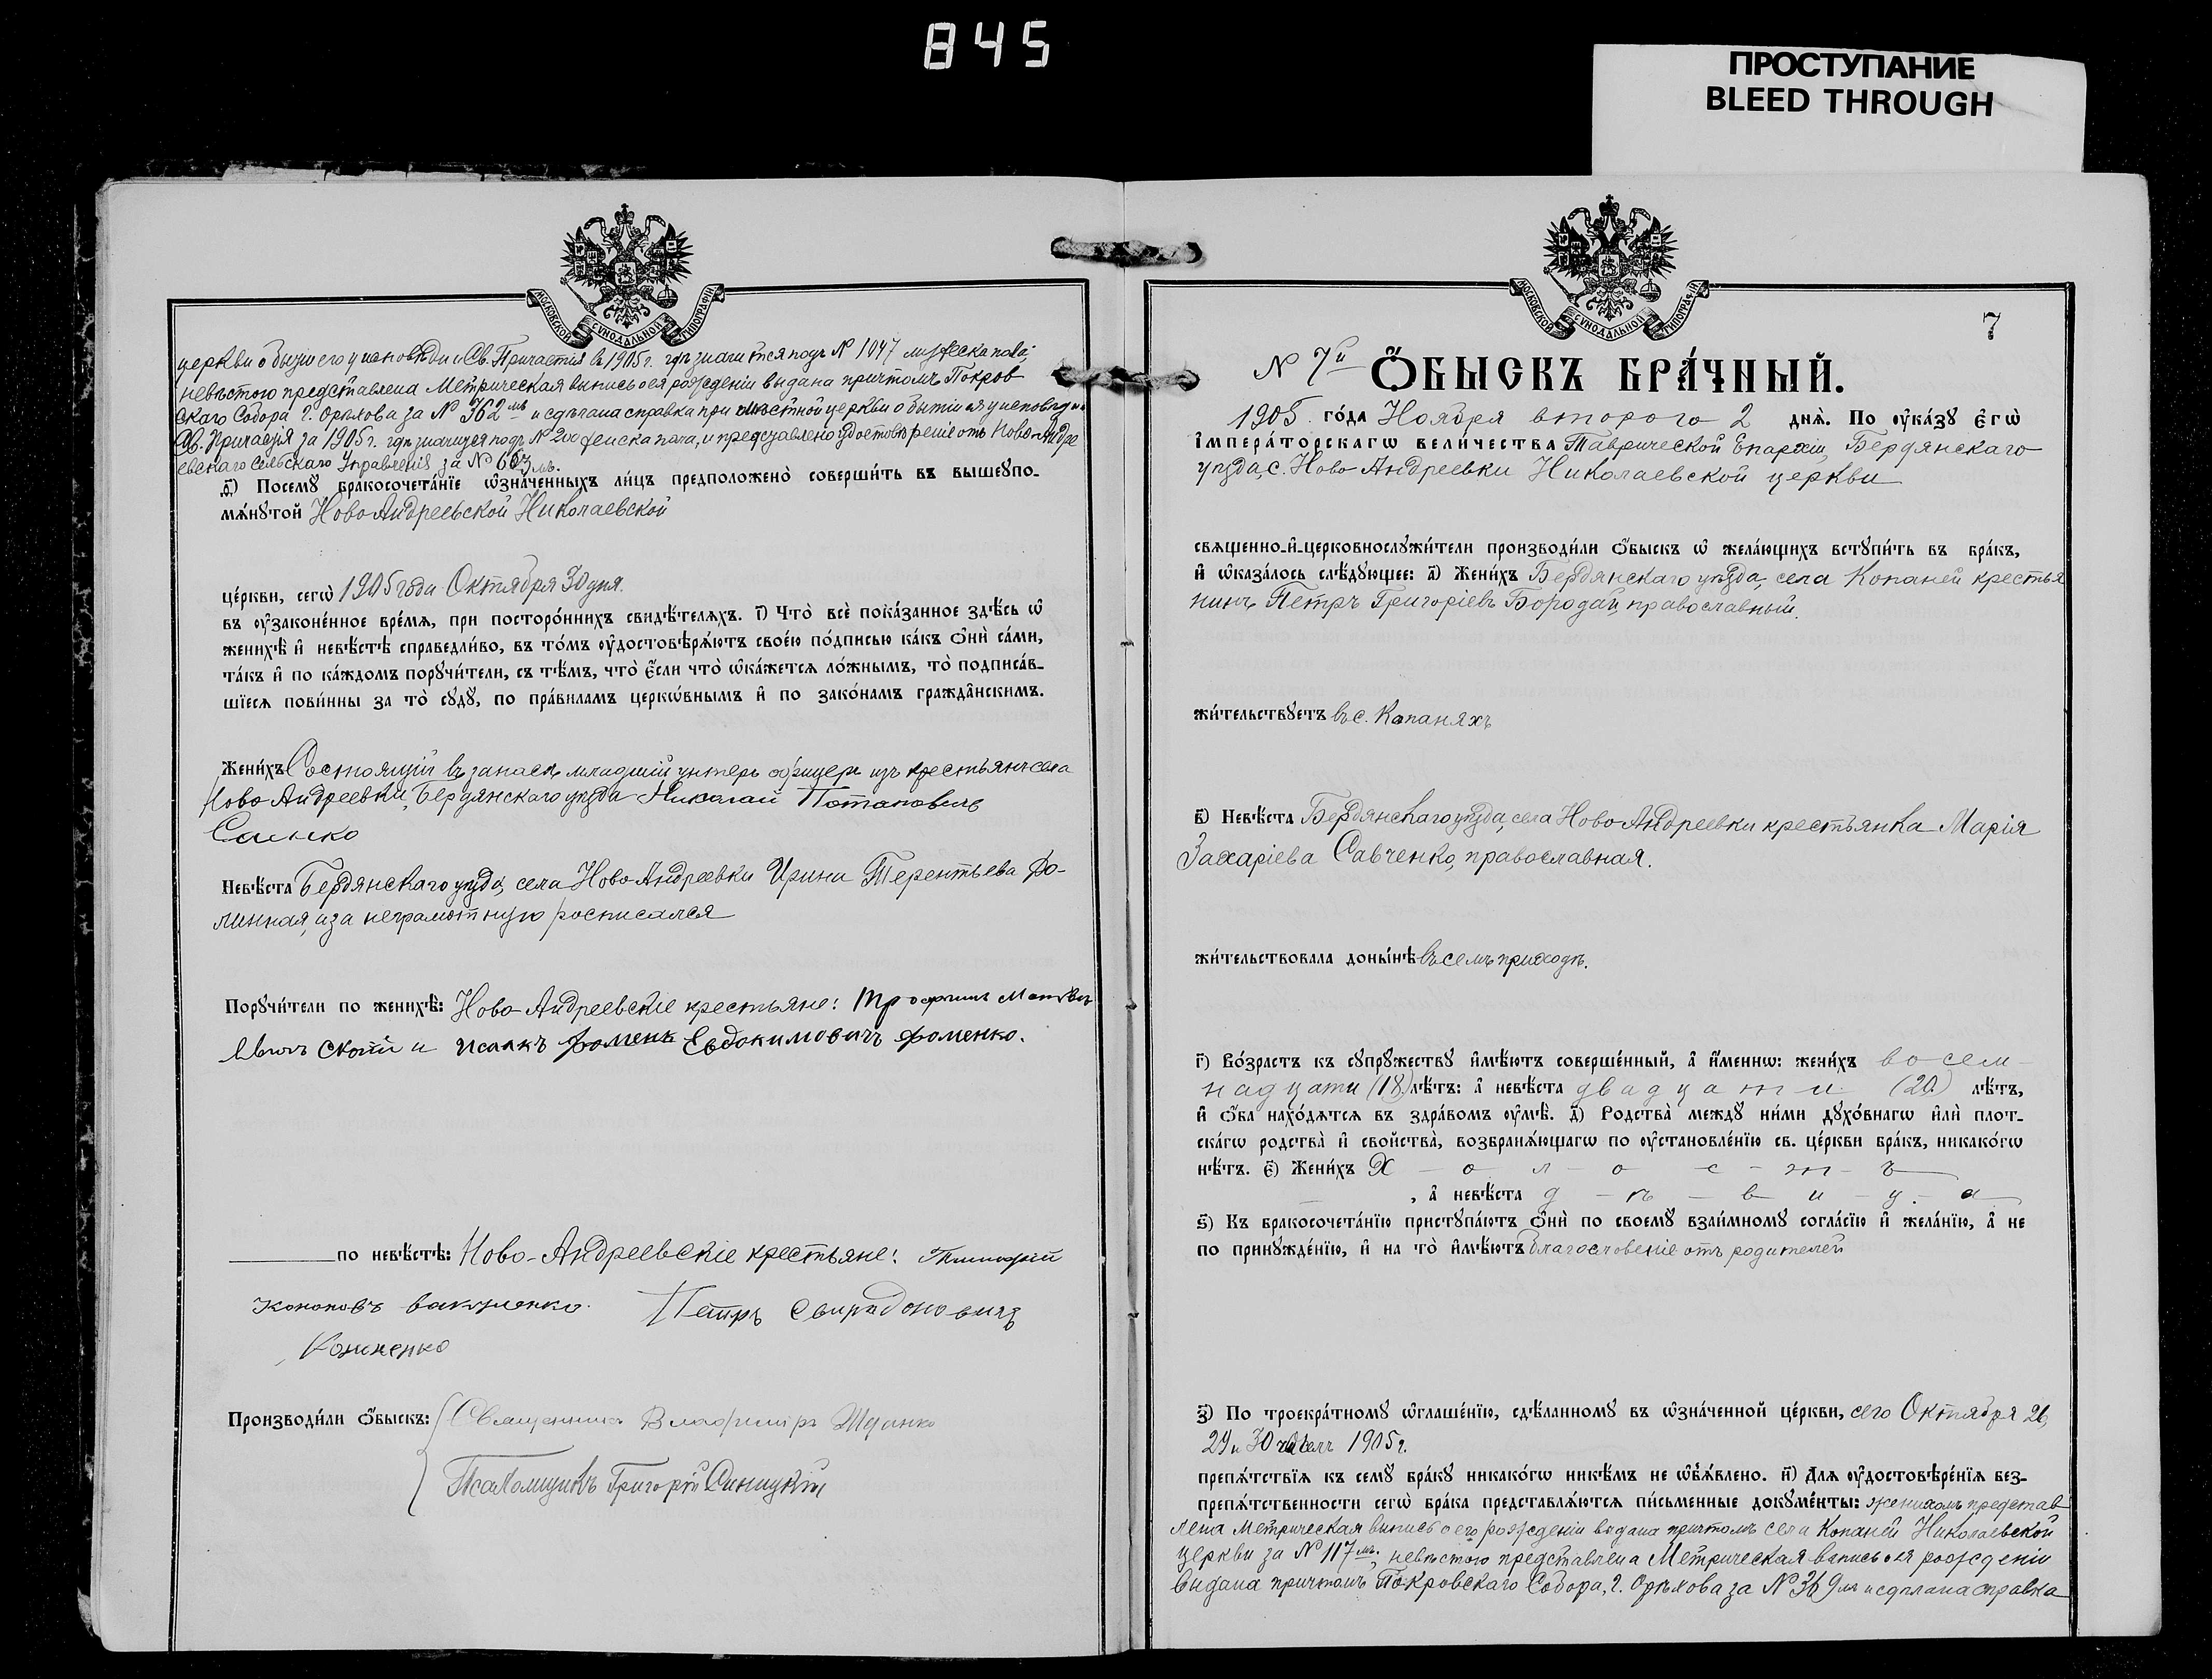 845
ПРОСТУПАНИЕ
BLEED THROUGH
МОСКОВСКОЙ СѴНОДАЛЬНОЙ ТИПОГРАФІИ
церкви о бытіи его у исповѣди и Св. Причастія въ 1905 г. гдѣ значится подъ № 1047 мужеска пола,
невѣстою представлена Метрическая выпись о ея рожденіи выдана причтомъ Покров
скаго Собора г. Орѣхова за № 362 мъ и сдѣлана справка при мѣстной церкви о бытіи ея у исповѣди и
Св. Причастія за 1905 г. гдѣ значится подъ № 200 женска пола, и представлено удостовѣреніе отъ Ново-Андре
евскаго Сельскаго Управленія за № 663 мъ.
д҃) Посемꙋ бракосочета́нїе ѡ҆зна́ченныхъ ли́цъ предположено̀ соверши́ть въ вышеꙋпо-
мѧ́нꙋтой Ново Андреевской Николаевской
це́ркви, сегѡ̀ 1905 года Октября 30 дня.
въ ᲂу҆законе́нное вре́мѧ, при посторо́ннихъ свидѣ́телѧхъ. і҃) Что̀ всѐ пока́занное здѣ́сь ѡ҆
женихѣ̀ и҆ невѣ́стѣ справедли́во, въ то́мъ ᲂу҆достовѣрѧ́ютъ свое́ю по́дписью ка́къ ѻ҆нѝ са́ми,
та́къ и҆ по ка́ждомъ порꙋчи́тели, съ тѣ́мъ, что̀ є҆́сли что̀ ѡ҆ка́жетсѧ ло́жнымъ, то̀ подписа́в-
шїесѧ пови́нны за то̀ сꙋдꙋ̀, по пра́виламъ церкѡ́внымъ и҆ по зако́намъ гражда́нскимъ.
Жени́хъ Состоящій въ запасѣ младшій унтеръ офицеръ изъ крестьянъ села
Ново Андреевки, Бердянскаго уѣзда Николай Потаповичъ
Саенко
Невѣ́ста Бердянскаго уѣзда, села Ново Андреевки Ирина Терентьева Фо-
минная, а за неграмотную росписался
Порꙋчи́тели по женихѣ̀: Ново-Андреевскіе крестьяне: Трофимъ
и Исаакъ Фоменъ Евдокимовичъ Фоменко.
по невѣ́стѣ: Ново-Андреевскіе крестьяне: Тимофей
Кононовъ Вакуленко. Петръ Свиридоновичъ
Кононенко
Производи́ли ѻ҆́быскъ: Священникъ Владиміръ
Псаломщикъ Григорій Синицкій
МОСКОВСКОЙ СѴНОДАЛЬНОЙ ТИПОГРАФІИ
7
№ 7й Ѻ҆́БЫСКЪ БРА́ЧНЫЙ.
1905 го́да Ноября второго 2 днѧ̀. По ᲂу҆ка́зꙋ є҆гѡ̀
і҆мпера́торскагѡ вели́чества Таврической Епархіи, Бердянскаго
уѣзда, с. Ново Андреевки Николаевской церкви
свѧще́нно-и҆-церковнослꙋжи́тели производи́ли ѻ҆́быскъ ѡ҆ жела́ющихъ встꙋпи́ть въ бра́къ,
и҆ ѡ҆каза́лось слѣ́дꙋющее: а҃) Жени́хъ Бердянскаго уѣзда, села Копаней крестья
нинъ Петръ Григоріевъ Бородай, православный.
жи́тельствꙋетъ въ с. Копаняхъ
в҃) Невѣ́ста Бердянскаго уѣзда, села Ново Андреевки крестьянка Марія
Захаріева Савченко, православная.
жи́тельствовала доны́нѣ въ семъ приходѣ.
г҃) Во́зрастъ къ сꙋпрꙋ́жествꙋ и҆мѣ́ютъ соверше́нный, а҆ и҆́меннѡ: жени́хъ восем-
надцати (18) лѣ́тъ: а҆ невѣ́ста двадцати (20) лѣ́тъ,
и҆ ѻ҆́ба нахо́дѧтсѧ въ здра́вомъ ᲂу҆мѣ̀. д҃) Родства̀ междꙋ̀ ни́ми дꙋхо́внагѡ и҆лѝ плот-
ска́гѡ родства̀ и҆ свойства̀, возбранѧ́ющагѡ по ᲂу҆становле́нїю св. це́ркви бра́къ, никако́гѡ
нѣ́тъ. є҃) Жени́хъ Х - о - л - о - с - т - ъ
, а҆ невѣ́ста д - ѣ - в - и - ц - а
ѕ҃) Къ бракосочета́нїю пристꙋпа́ютъ ѻ҆нѝ по своемꙋ̀ взаи́мномꙋ согла́сїю и҆ жела́нїю, а҆ не
по принꙋжде́нїю, и҆ на то̀ и҆мѣ́ютъ благословеніе отъ родителей
з҃) По троекра́тномꙋ ѡ҆глаше́нїю, сдѣ́ланномꙋ въ ѡ҆зна́ченной це́ркви, сего Октября 26,
29 и 30 1905 г.
препѧ́тствїѧ къ семꙋ̀ бра́кꙋ никако́гѡ никѣ́мъ не ѡ҆б̾ѧ́влено. и҃) Длѧ ᲂу҆достовѣре́нїѧ без-
препѧ́тственности сегѡ̀ бра́ка представлѧ́ютсѧ пи́сьменные докꙋме́нты: женихомъ представ
лена Метрическая выпись о его рожденіи выдана причтомъ села Копаней Николаевской
церкви за № 117 мъ. невѣстою представлена Метрическая выпись о ея рожденіи
выдана причтомъ Покровскаго Собора, г. Орѣхова за № 369 мъ и сдѣлана справка